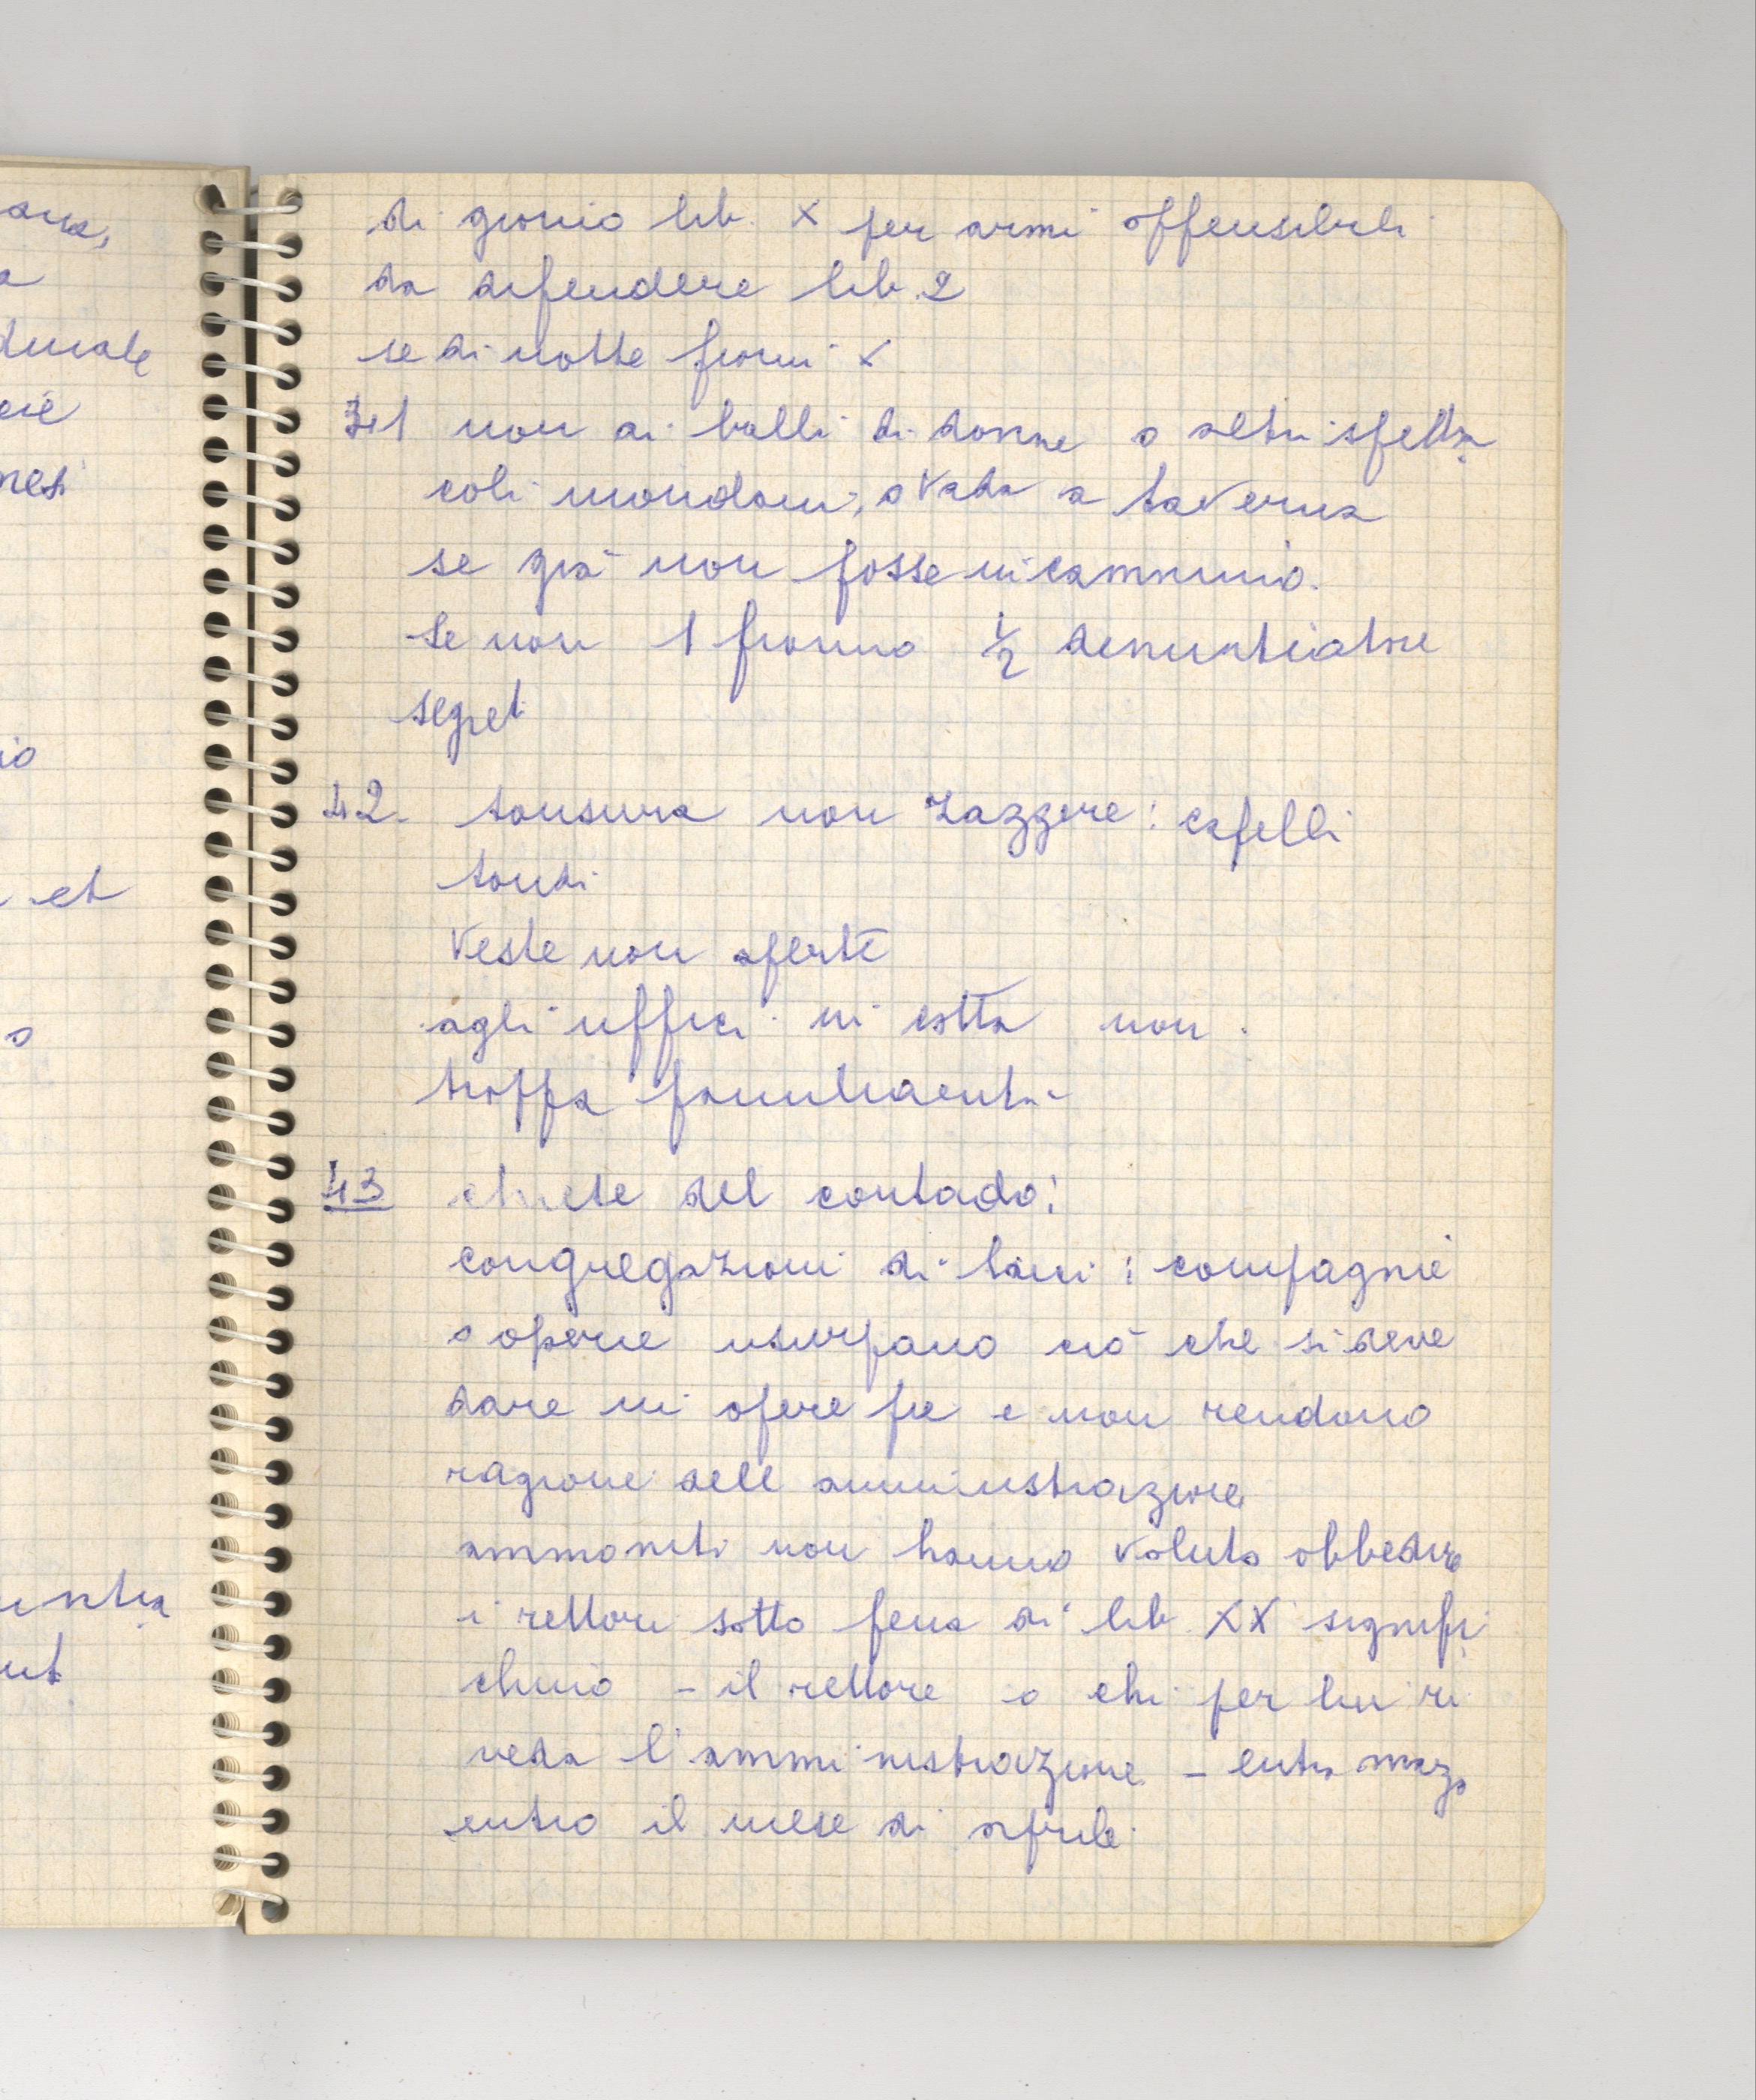 di giorno lib. X per armi offensibili
da difendere lib. 2
se di notte fiorni X
41 non ai balli di donne o altri spetta
coli mondani, o vada a taverna
se già non fosse in cammino.
Se non 1 fiorino 1/2 denuntiatore
segret
42. tonsura non zazzere: capelli
tondi
Veste non aperte
agli uffici in cotta non
troppa
43 chiese del contado:
congregazioni di laici: compagnie
o opere usurpano ciò che si deve
dare in opere pie e non rendono
ragione dell amministrazione
ammoniti non hanno voluto obbedire
i rettori sotto pena di lib. XX signifi
chino - il rettore o chi per lui ri
veda l'amministrazione - entro marzo
entro il mese di aprile
ana,
a
durale
nesi
io
et
o